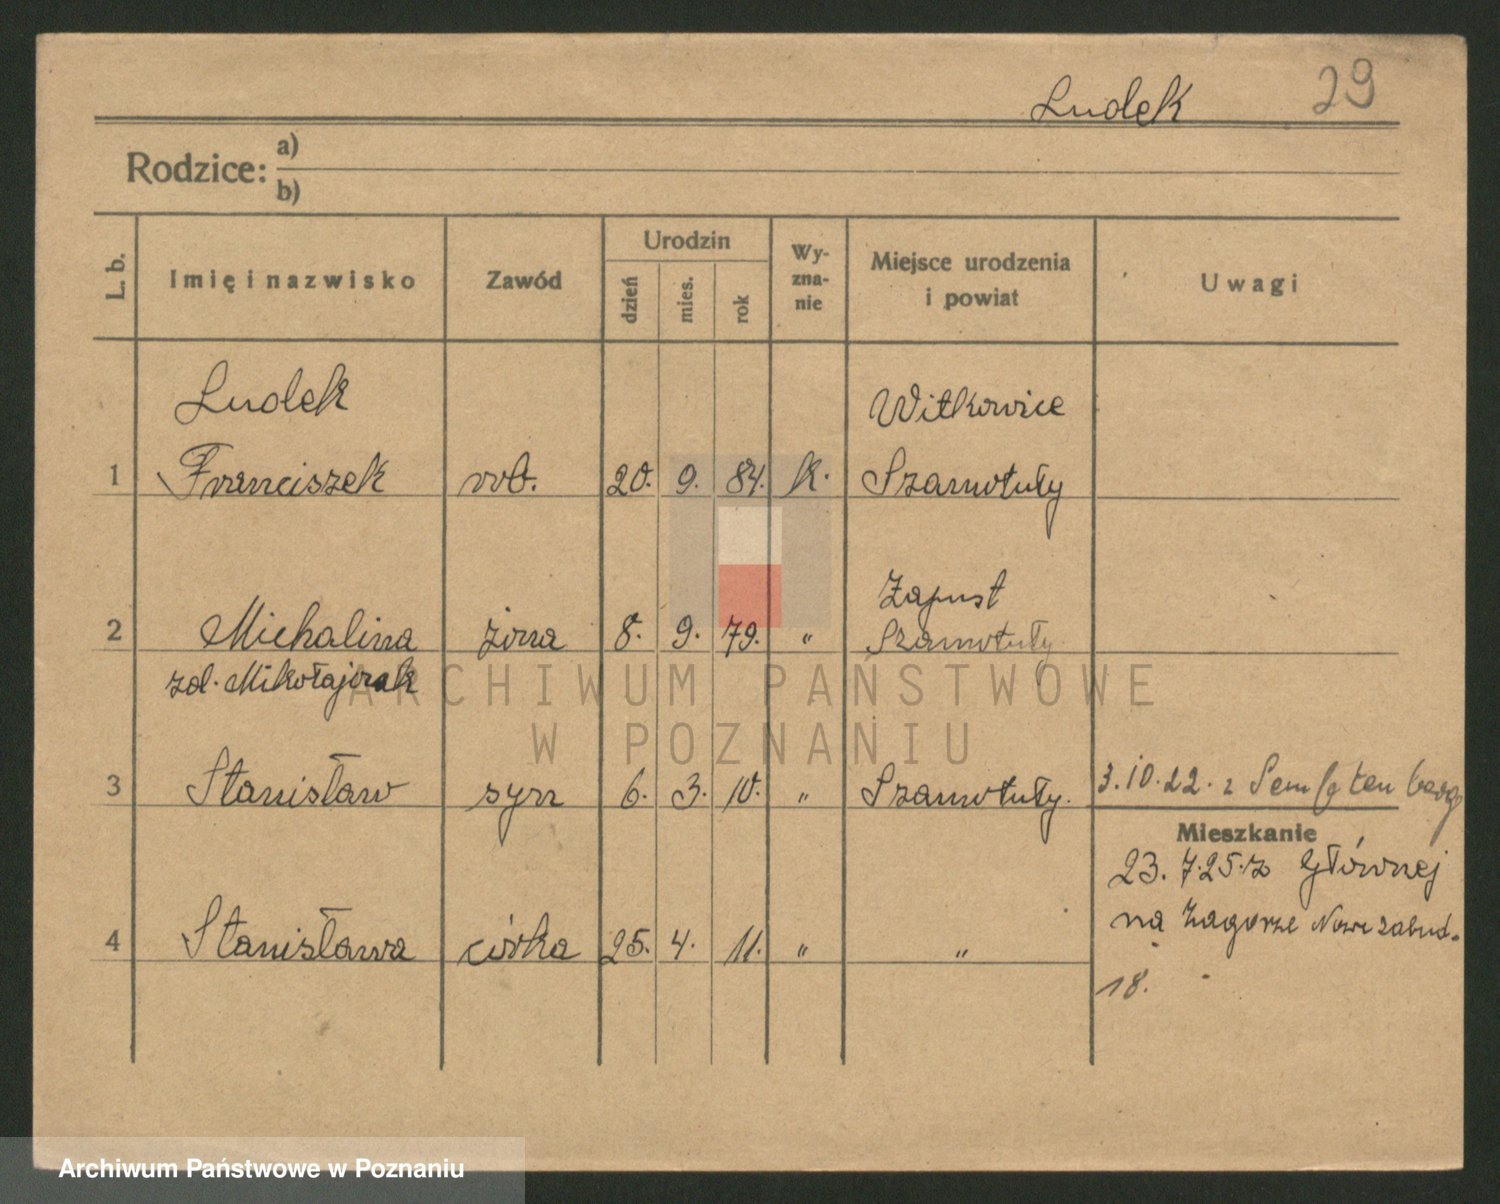 Ludek 29
Rodzice: a)
b)
L. b.
Imię i nazwisko
Zawód
Urodzin
dzień
mies.
rok
Wy-
zna-
nie
Miejsce urodzenia
i powiat
Uwagi
Ludek Witkowice
1 Franciszek rob. 20. 9. 84. k. Szamotuły
Zapust
2 Michalina żona 8. 9. 79. " Szamotuły
zd. Mikołajczak
3 Stanisław syn 6. 3. 10. " Szamotuły. 3.10.22. z
Mieszkanie
23. 7.25. z Głównej
na Zagorze Nowe zabud.
4 Stanisława córka 25. 4. 11. " "
18.
ARCHIWUM PAŃSTWOWE
W POZNANIU
Archiwum Państwowe w Poznaniu